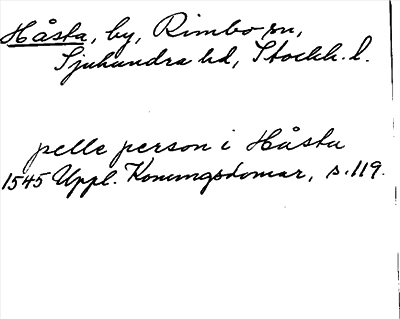 Håsta, by, Rimbo sn,
Sjuhundra hd, Stockh. l.
pelle person i Håsta
1545 Uppl. Konungsdomar, s. 119.